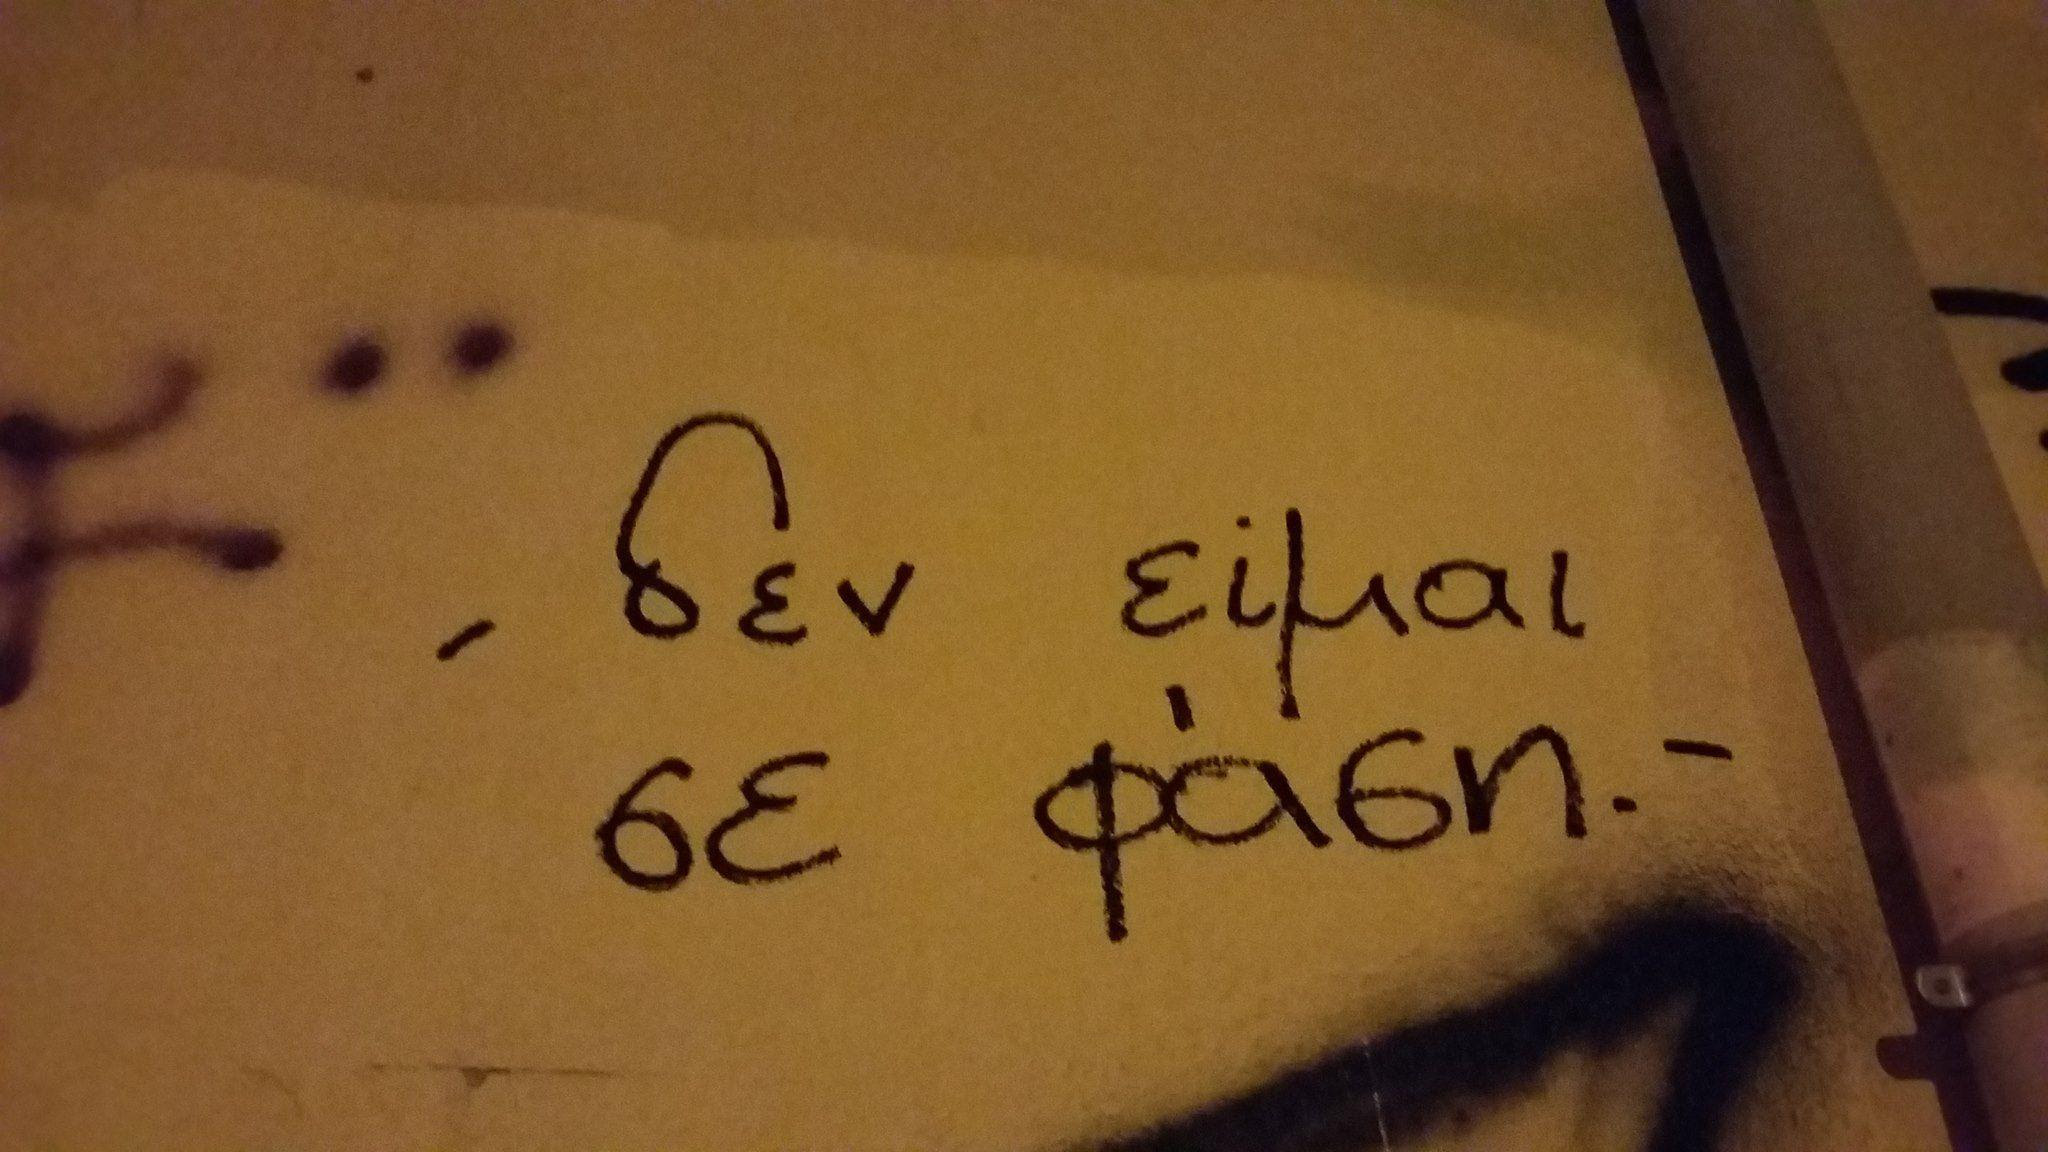 - δεν είμαι
σε φάση. -